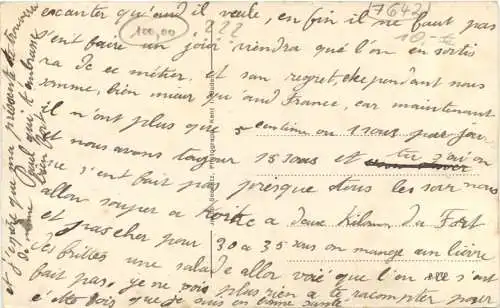 7642
100,00
222
10,-
excanter qu'and il veule, en fin il ne faut pas
s'ent faire un joir viendra que l'on en sortis
ra de ce métier. et son regret, cependant nous
somme, bien mieux qu'and France, car maintenant
il n'ont plus que 5 centime ou 1 sous par jou
et nous avons toujour 15 sous et
ne s'ent fait pas presque tous les soir nous
allon souper a a deux kilom du Fort
et pas cher pour 30 a 35 sous on mange un livre
des frittes une salade allor voie que l'on s'ent
fait pas. je ne vois plus rien a te raconter pour
cette fois que je suis en bonne santé
et j'espère que ma présente te
de même qui t'embrasse
bien